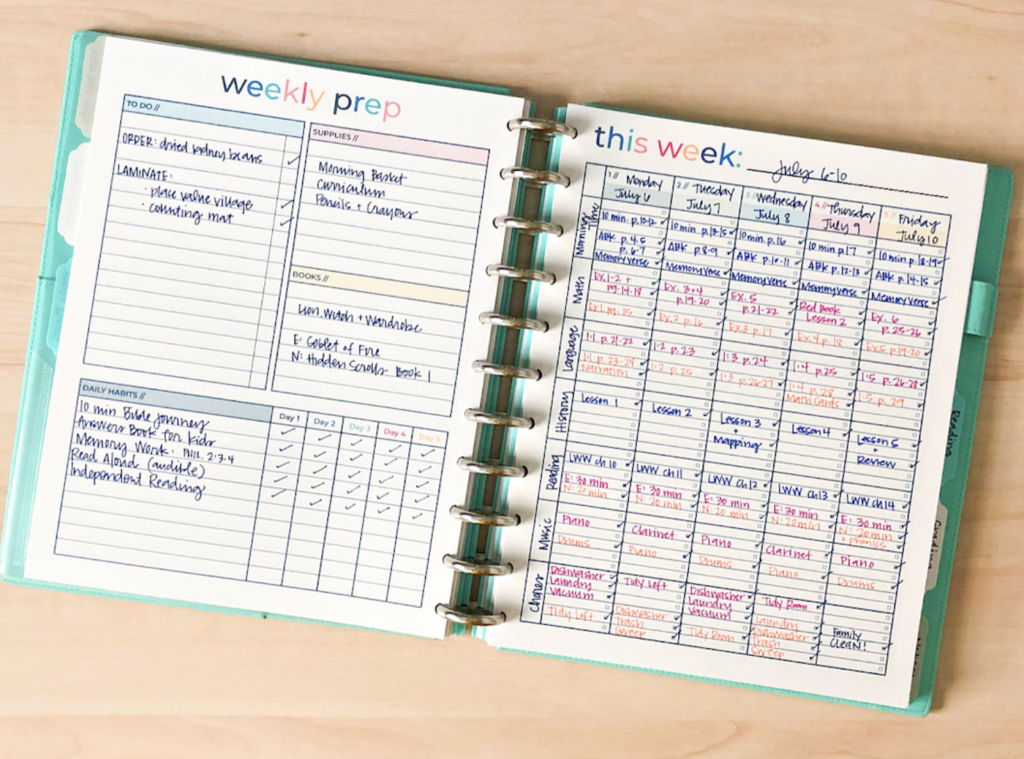 weekly prep
TO DO //
ORDER: dried kidney beans
LAMINATE:
· place value village
· counting mat
SUPPLIES //
Morning Basket
Curriculum
Pencils + Crayons
BOOKS //
Lion, Witch + Wardrobe
E: Goblet of Fire
N: Hidden Scrolls Book 1
DAILY HABITS //
Day 1 Day 2 Day 3 Day 4 Day 5
10 min Bible Journey
Answers Book for kids
Memory Work: PHIL. 2:3-4
Read Aloud (audible)
Independent Reading
this week: July 6-10
1 // Monday 2 // Tuesday 3 // Wednesday 4 // Thursday 5 // Friday
July 6 July 7 July 8 July 9 July 10
Morning Time
10 min. p.10-12 10 min. p.13-15 10 min p.16 10 min p.17 10 min p.18-19
ABK p. 4-5 ABK p.8-9 ABK p.10-11 ABK p.12-13 ABK p.14-15
p. 6-7
Memory Verse Memory Verse Memory Verse Memory Verse Memory Verse
Math
Ex. 1-2 + Ex. 3+4 Ex. 5 Red Book Ex. 6
p.19-20 p.21-22 Lesson 2 p.25-26
Ex.2 p.16 Ex.3 p.17 Ex.4 p.18 Ex.5 p.19-20
Language
1:1 p.21-22 1:2 p.23 1:3 p.24 1:4 p.25 1:5 p.26-28
1:1 p.23-24 1:2 p.25 1:3 p.26-27 1:4 p.28 1:5 p.29
Narration Math Cards
History
Lesson 1 Lesson 2 Lesson 3 Lesson 4 Lesson 5
+ +
Mapping Review
Reading
LWW ch 10 LWW ch 11 LWW ch 12 LWW ch 13 LWW ch 14
E: 30 min E: 30 min E: 30 min E: 30 min E: 30 min
N: 20 min N: 20 min N: 20 min N: 20 min N: 20 min
+ phonics
Music
Piano Clarinet Piano Clarinet Piano
Drums Piano Drums Piano Drums
Chores
Dishwasher Tidy Loft Dishwasher Tidy Room Family
Laundry Laundry CLEAN!
Vacuum Vacuum
Tidy Loft Dishwasher Tidy Room Laundry
Trash Dishwasher
Sweep Trash
Sweep
Reading